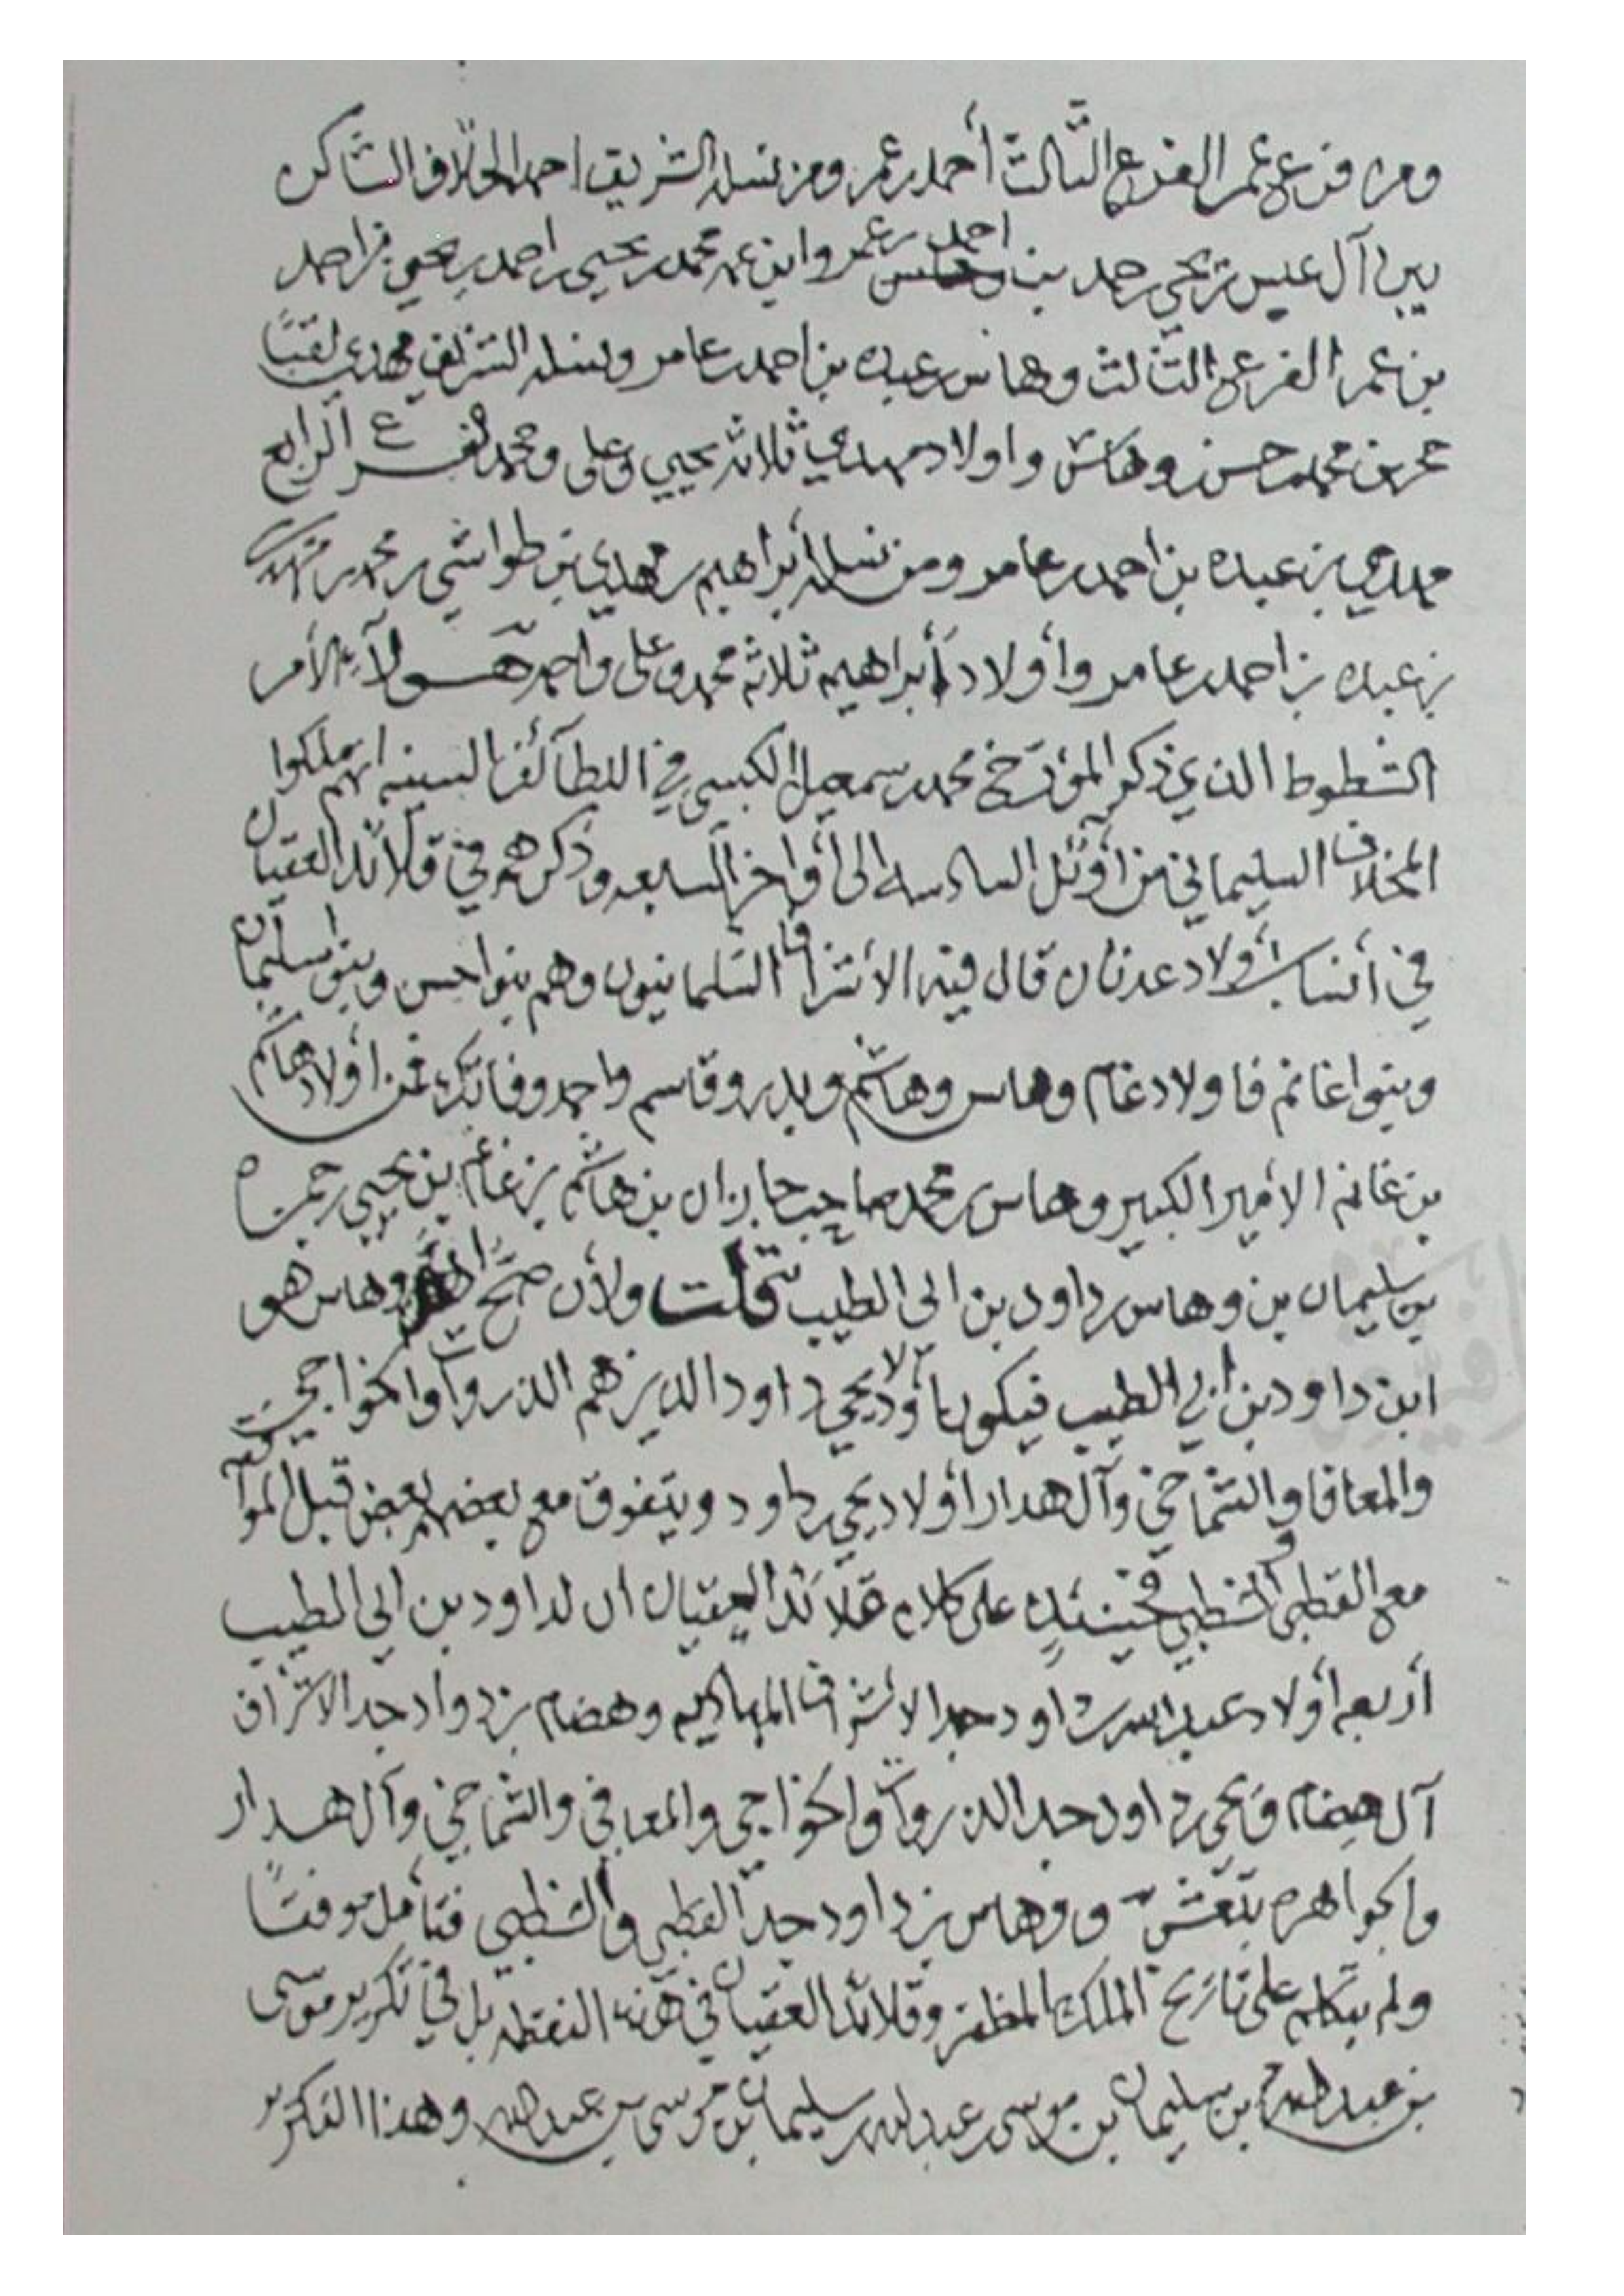 ومن فرع عمر الفرع الثالث أحمد بن عمر ومن نسله الشريف احمد الحلاف الساكن
بين آل عيسى بن يحي بن حمد بن احمد بن عمر وابن عمه محمد بن يحيى بن احمد بن يحي بن احمد
بن عمر الفرع الثالث وهاس بن عبده بن احمد بن عامر ونسله الشريف مهدي لقبًا
بن محمد حسن وهاس واولاد مهدي ثلاثة يحيى وعلى ومحمد لفرع الرابع
مهدي بن عبده بن احمد بن عامر ومن نسله أبراهيم بن مهدي بن طواشي بن محمد بن مهدي
بن عبده بن احمد بن عامر وأولاد أبراهيم ثلاثه محمد وعلى واحمد هولآء الأمر
الشطوط الذي ذكر المؤرخ محمد بن سمعيل الكبسي في اللطآئف السنيه انهم ملكوا
المخلاف السليماني من أوئل السادسه الى أواخر السابعه وذكرهم في قلآئد العقيان
في أنساب أولاد عدنان قال فيه الأشراف السلمانيون وهم بنوا حسن وبنو سليمان
وبنوا غانم فاولاد غانم وهاس وهاشم وبدر وقاسم واحمد وفاتك فمن أولاد هاشم
بن غانم الامير الكبير وهاس بن محمد صاحب جازان بن هاشم بن غانم بن يحيى بن حمزه
بن سليمان بن وهاس بن داود بن ابى الطيب قلت ولأن صح وهاس هو
ابن داود بن أبي الطيب فيكون أولاد يحي بن داود الذين هم الذروات والخواجي
والمعافا والشماخي وآل هدار أولاد يحي بن داود ويتفوق مع بعضهم بعض قبل
مع القطبي والشطبي فحينئدٍ على كلام قلآئد العقيان ان لداود بن ابي الطيب
أربعه أولاد عبدالله بن داود جد الاشراف المهاديه وهضام بن داود جد الاشراف
آل هضام ويحي بن داود جد الذروات والخواجي والمعافي والشماخي وآل هدار
والجواهره بتعشر ووهاس بن داود جد القطبي والشطبي فتأمل موفقًا
ولم يتكلم على تاريخ الملك المظفر وقلائد العقيان في هذه النقطه بل في تكرير موسى
بن عبدالله بن سليمان بن موسى بن عبدالله بن سليمان بن موسى بن عبدالله وهذا التكرير